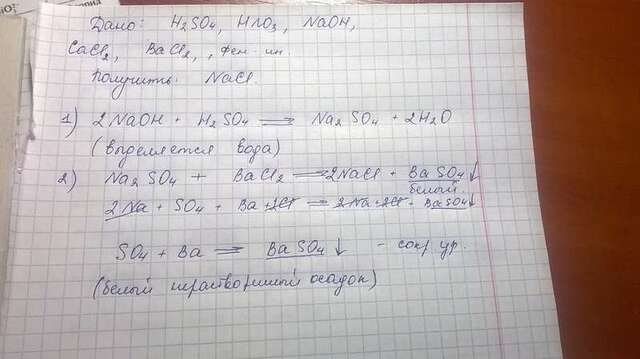 Дано: H₂SO₄, HNO₃, NaOH,
CaCl₂, BaCl₂, , фен-ин.
Получить: NaCl.
1) 2NaOH + H₂SO₄ = Na₂SO₄ + 2H₂O
(выделяется вода)
2) Na₂SO₄ + BaCl₂ = 2NaCl + BaSO₄↓
белый.
2Na + SO₄ + Ba + 2Cl = 2Na + 2Cl + BaSO₄↓
SO₄ + Ba = BaSO₄↓ - сокр. ур.
(белый нерастворимый осадок)